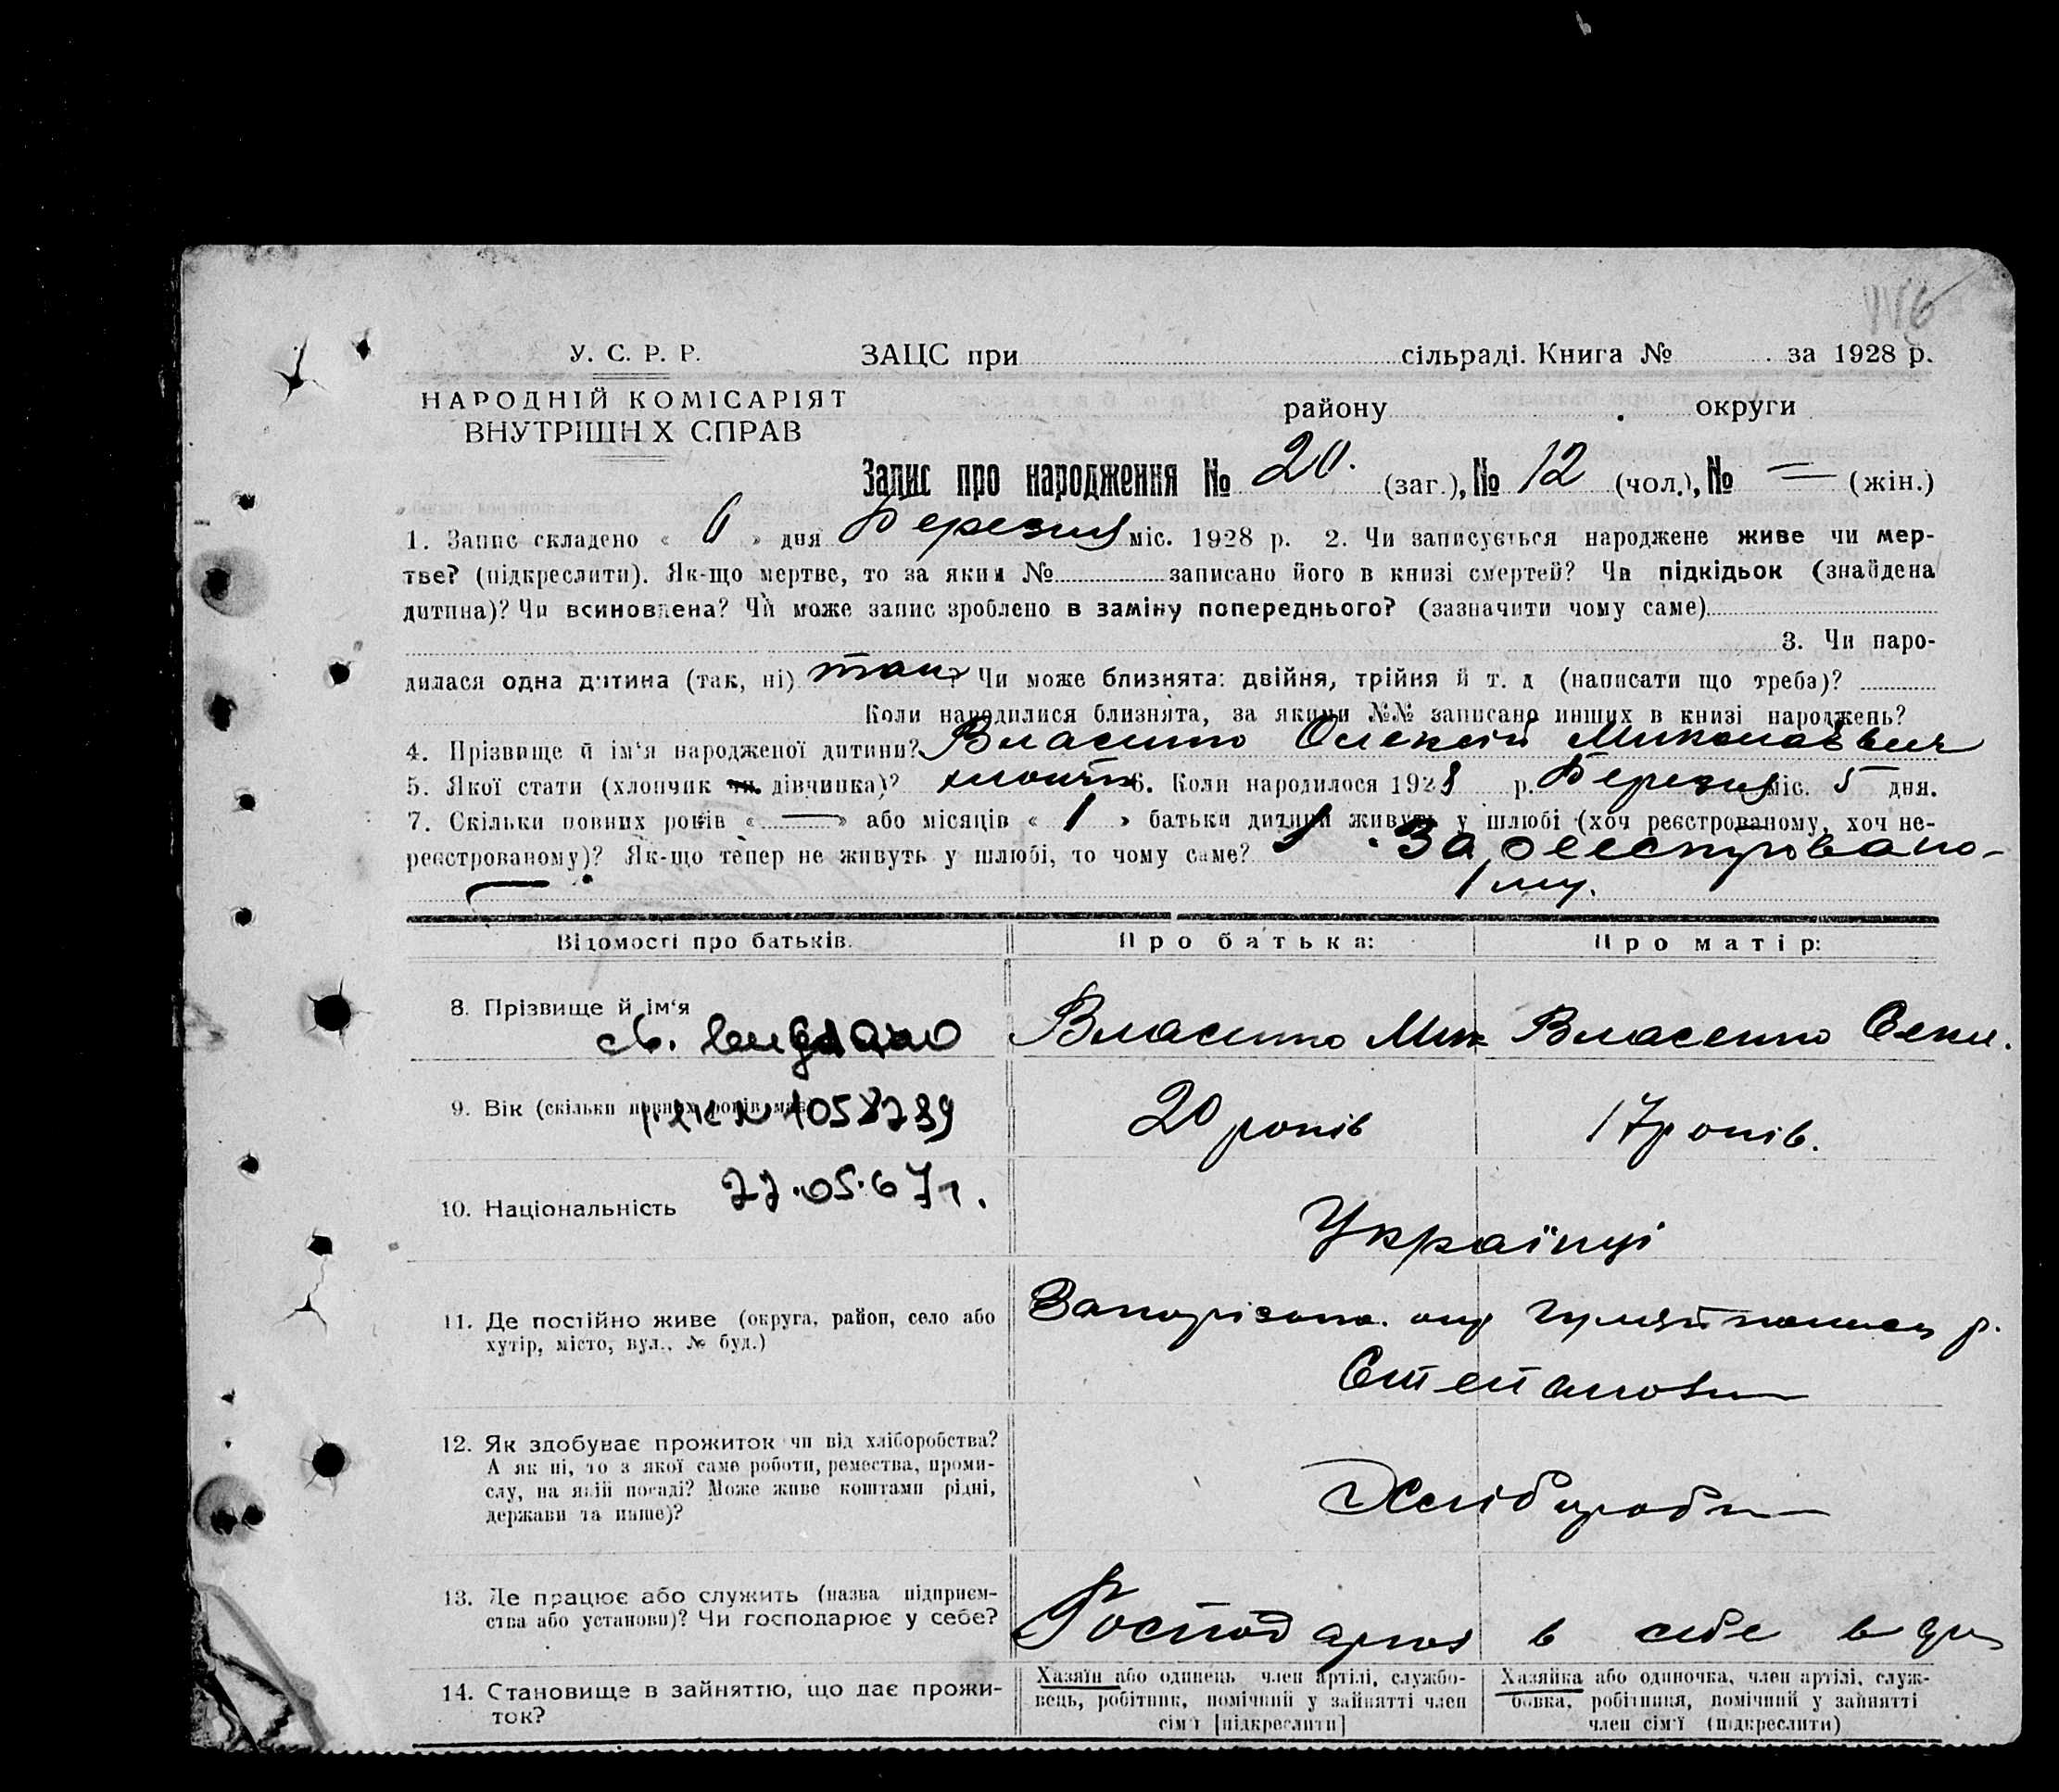 116
У. С. Р. Р.
ЗАЦС при сільраді. Книга № за 1928 р.
НАРОДНІЙ КОМІСАРІЯТ
ВНУТРІШНІХ СПРАВ
району округи
Запис про народження № 20. (заг.), № 12 (чол.), № — (жін.)
1. Запис складено « 6 » дня Березня міс. 1928 р. 2. Чи записується народжене живе чи мер-
тве? (підкреслити). Як-що мертве, то за яким № записано його в книзі смертей? Чи підкідьок (знайдена
дитина)? Чи всиновлена? Чи може запис зроблено в заміну попереднього? (зазначити чому саме)
3. Чи наро-
дилася одна дитина (так, ні) так? Чи може близнята: двійня, трійня й т. д (написати що треба)?
Коли народилися близнята, за якими №№ записано инших в книзі народжень?
4. Прізвище й ім'я народженої дитини? Власенко Олексій Миколаєвич
5. Якої стати (хлопчик чи дівчинка)? хлопч 6. Коли народилося 1928 р. Березня міс. 5 дня.
7. Скільки повних років « — » або місяців « 1 » батьки дитини живуть у шлюбі (хоч реєстрованому, хоч не-
реєстрованому)? Як-що тепер не живуть у шлюбі, то чому саме? Зареєстровано-
му.
Відомості про батьків. Про батька: Про матір:
8. Прізвище й ім'я Власенко Мик Власенко Оеки.
св. видано
9. Вік (скільки повних років має) 20 років 17 років.
N 1058789
10. Національність 22.05.67г. Українці
11. Де постійно живе (округа, район, село або Запорізька. окр Гуляйпольськ р.
хутір, місто, вул., № буд.) Степановки
12. Як здобуває прожиток чи від хліборобства?
А як ні, то з якої саме роботи, ремества, проми-
слу, на якій посаді? Може живе коштами рідні, Хлібороби
держави та инше)?
13. Де працює або служить (назва підприєм-
ства або установи)? Чи господарює у себе? Господарює в себе в
14. Становище в зайняттю, що дає прожи-
ток?
Хазяїн або одинець, член артілі, службо-
вець, робітник, помічний у зайнятті член
сім'ї [підкреслити]
Хазяйка або одиночка, член артілі, служ-
бовка, робітниця, помічний у зайнятті
член сім'ї (підкреслити)